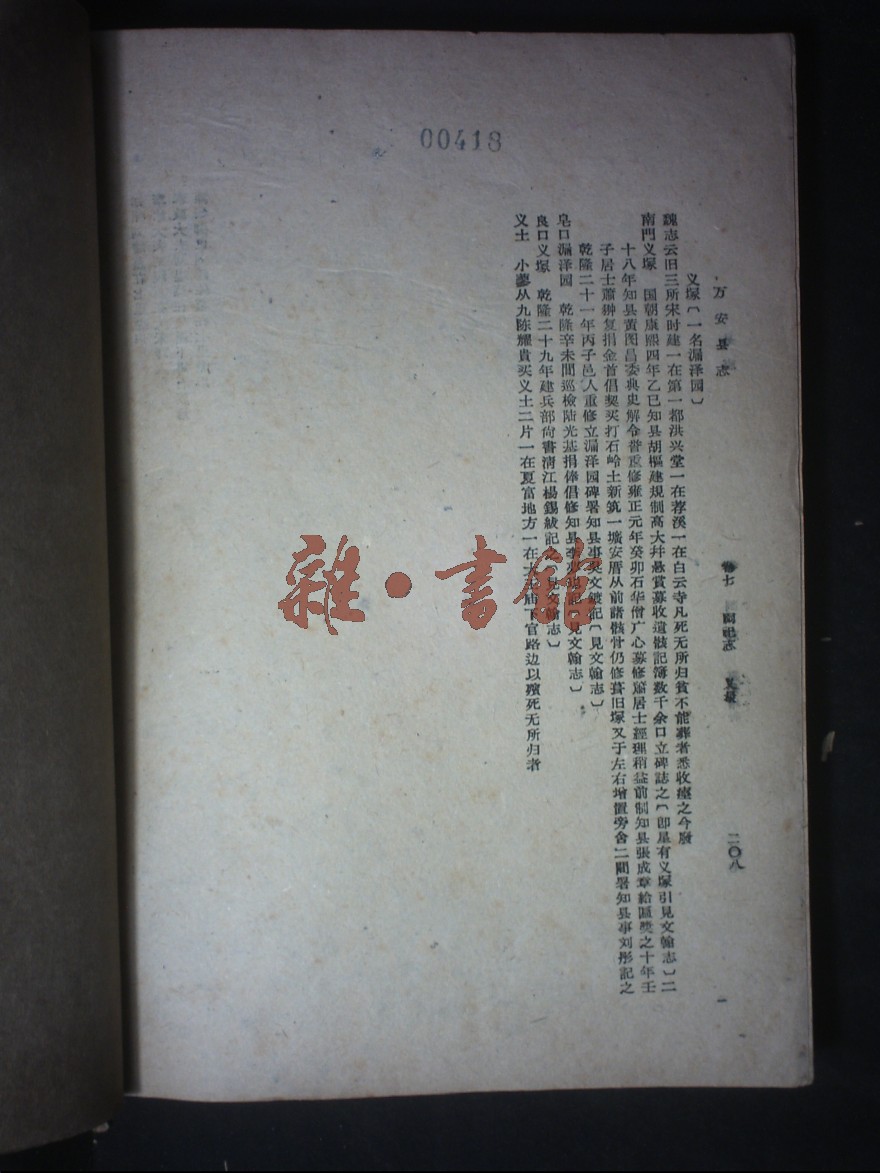 00418
万安县志 卷七 祀志 义塚 二〇八
义塚〔一名漏泽园〕
魏志云旧三所宋时建一在第一都洪兴堂一在荐溪一在白云寺凡死无所归貧不能葬者悉收瘗之今廢
南門义塚 国朝康熙四年乙巳知县胡樞建規制高大幷悬賞募收遺骸記簿数千余口立碑誌之〔郎星有义塚引見文翰志〕二
十八年知县黄图昌委典史解令誉重修雍正元年癸卯石华僧广心募修蕭居士經理稍益前制知县張成章給匾獎之十年壬
子居士蕭翀复捐金首倡契买打石岭土新筑一壙安厝从前諸骸骨仍修葺旧塚又于左右增置旁舍二間署知县事刘彤記之
乾隆二十一年丙子邑人重修立漏泽园碑署知县事 文 記〔見文翰志〕
皂口漏泽园 乾隆辛未間巡檢陆光基捐俸倡修知县李 記〔見文翰志〕
良口义塚 乾隆二十九年建兵部尙書淸江楊錫紱記之〔見文翰志〕
义土 小蓼从九陈耀貴买义土二片一在夏富地方一在 庙下官路边以殯死无所归者
雜·書館